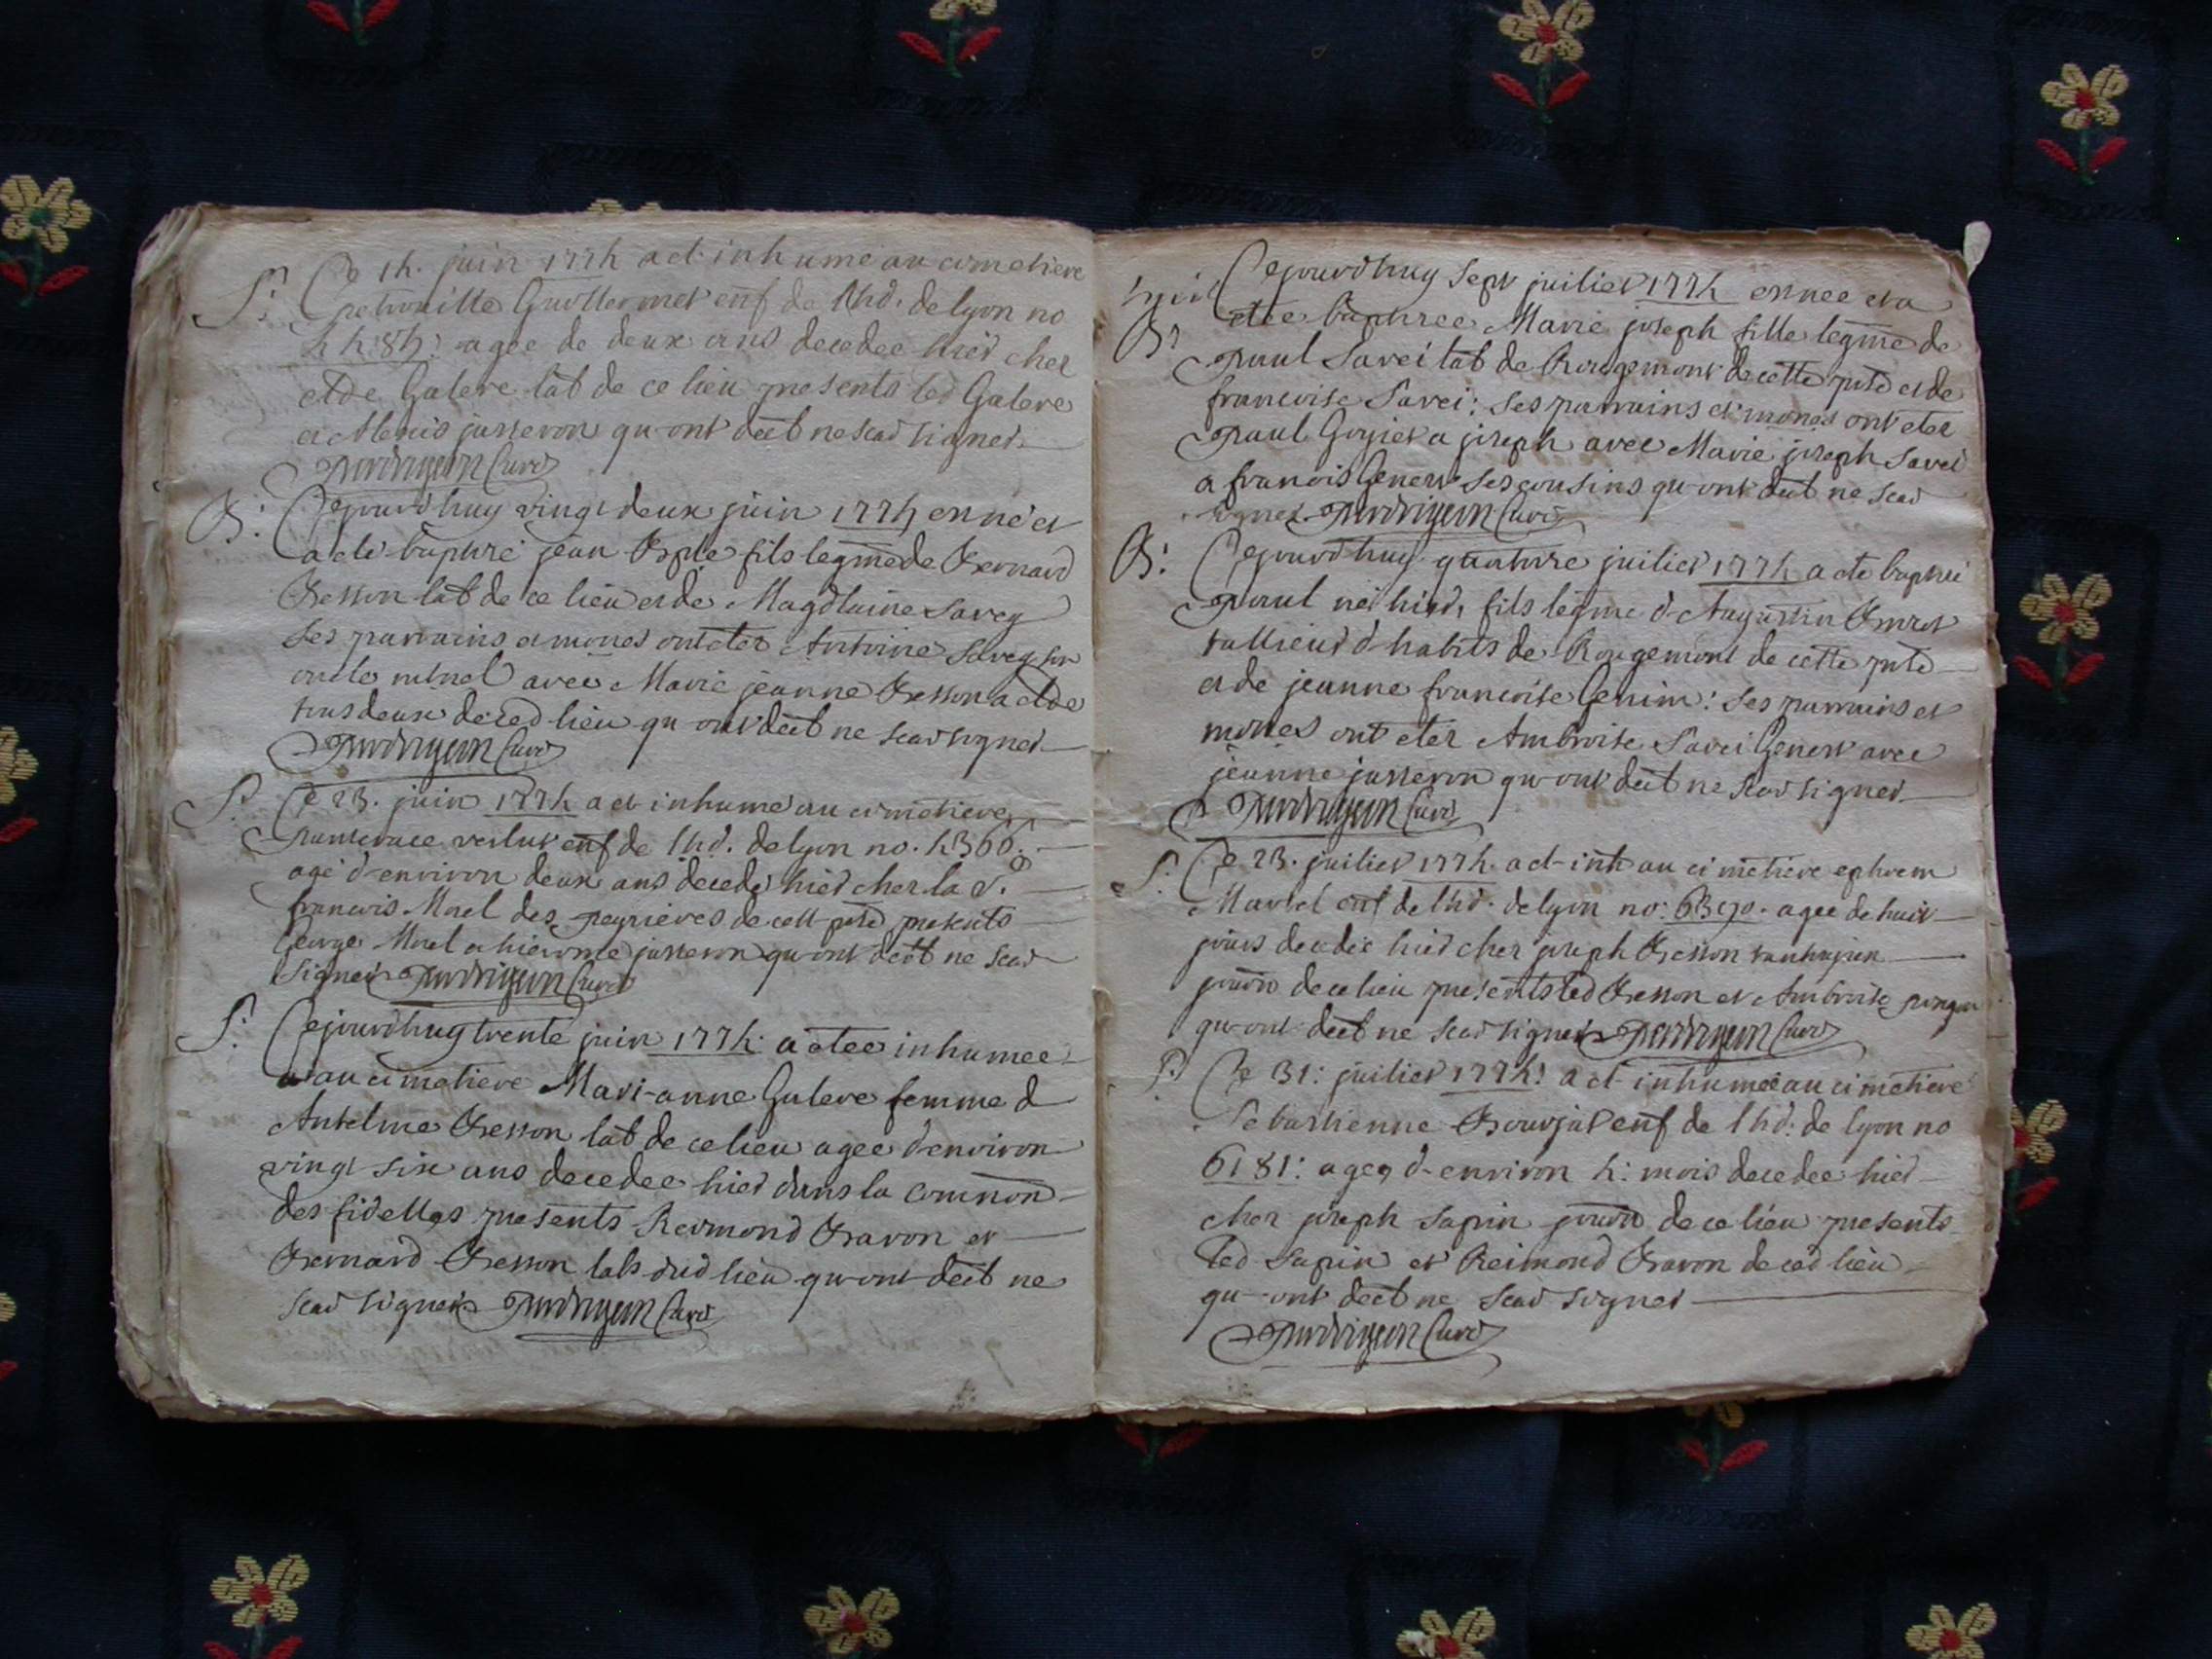 S: Ce 14. juin 1774 a et. inhumé au cimetiere
petronille Guillermet enf de lhd. de lyon no
agee de deux ans decedee hier chez
Galere lab de ce lieu presents led Galere
et Alexis jusseron qu-ont declt ne scav signer
curé
B: Cejourdhuy vingt deux juin 1774 en né et
a eté baptizé jean fils legme de Bernard
Besson lab de ce lieu et de Magdlaine Savey
ses parrains et mones ont eter Antoine Savey son
oncle mtnel avec Marie jeanne Besson
tous deux de ced lieu qu-ont declt ne scav signer
curé
S: Ce 23. juin 1774 a et inhumé au cimetiere
enf de lhd. de lyon no. 4366.
agé d-environ deux ans decedé hier chez la
francois Morel des de cett presents
George Morel et hierome jusseron qu-ont declt ne scav
signer curé
S: Cejourdhuy trente juin 1774 a etee inhumee
au cimetiere Mari-anne Galere femme d
Antelme Besson lab de ce lieu agee d-environ
vingt six ans decedee hier dans la commōn
des fidelles presents Reimond Bavon et
Bernard Besson labs dud lieu qu-ont declt ne
scav signer curé
Cejourdhuy sept juiliet 1774 en nee et a
B: etee baptizee Marie joseph fille legme de
paul Savei lab de Rougemont de cette et de
francoise Savei: ses parrains et mones ont eter
paul Goyiet a joseph avec Marie joseph Savei
a francois ses cousins qu-ont declt ne scav
signer curé
B: Cejourdhuy quatorze juiliet 1774 a eté baptizé
paul né hier, fils legme d-Augustin
tallieur d-habits de Rougemont de cette
et de jeanne francoise Genin: ses parrains et
mones ont eter Ambroise Savei avec
jeanne jusseron qu-ont declt ne scav signer
curé
S: Ce 23. juiliet 1774. a et-inh au cimetiere ephrem
Martel enf de lhd. de lyon no: agee de huit
jours decedée hier chez joseph Besson
de ce lieu presents led Besson et Ambroise
qu-ont declt ne scav signer curé
S: Ce 31: juiliet 1774: a et-inhumée au cimetiere
Sebastienne enf de lhd: de lyon no
6181: agee d-environ 4: mois decedee hier
chez joseph Sapin de ce lieu presents
led Sapin et Reimond Bavon de ced lieu
qu-ont declt ne scav signer
curé